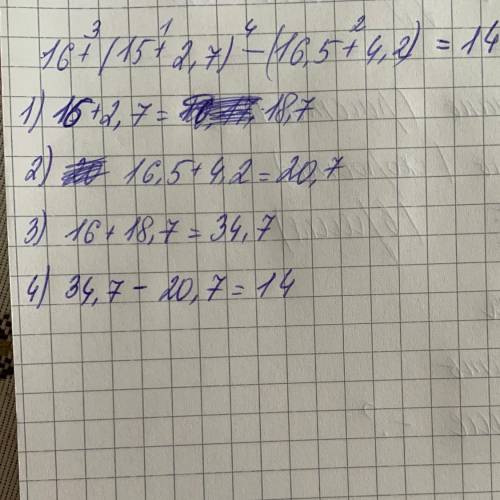 3 1 4 2
16+(15+2,7)-(16,5+4,2)=14
1) 16+2,7= 18,7
2) 16,5+4,2=20,7
3) 16+18,7=34,7
4) 34,7-20,7=14